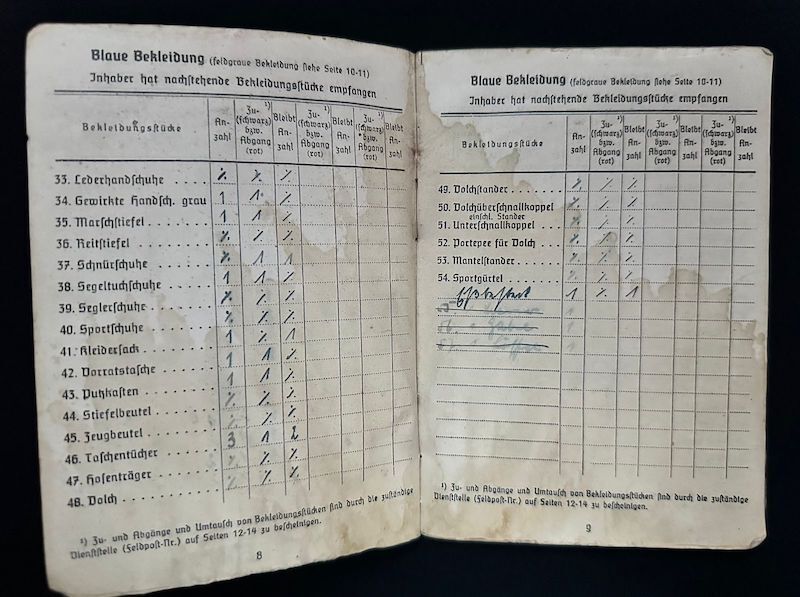 Blaue Bekleidung (feldgraue Bekleidung siehe Seite 10-11)
Inhaber hat nachstehende Bekleidungsstücke empfangen
Bekleidungsstücke An-zahl Zu-(schwarz) bzw. Abgang (rot) ¹) Bleibt An-zahl Zu-(schwarz) bzw. Abgang (rot) ¹) Bleibt An-zahl Zu-(schwarz) bzw. Abgang (rot) ¹) Bleibt An-zahl
33. Lederhandschuhe ..... ⁒ ⁒ ⁒
34. Gewirkte Handsch. grau 1 1 ⁒
35. Marschstiefel ....... 1 1 ⁒
36. Reitstiefel ......... ⁒ ⁒ ⁒
37. Schnürschuhe ....... ⁒ 1 1
38. Segeltuchschuhe .... 1 1 ⁒
39. Seglerschuhe ....... ⁒ ⁒ ⁒
40. Sportschuhe ........ ⁒ ⁒ ⁒
41. Kleidersack ......... 1 ⁒ 1
42. Vorratstasche ....... 1 1 ⁒
43. Putzkasten ......... 1 1 ⁒
44. Stiefelbeutel ....... ⁒ ⁒ ⁒
45. Zeugbeutel ......... ⁒ ⁒ ⁒
46. Taschentücher ...... 3 1 2
47. Hosenträger ........ ⁒ ⁒ ⁒
48. Dolch .............. ⁒ ⁒ ⁒
¹) Zu- und Abgänge und Umtausch von Bekleidungsstücken sind durch die zuständige
Dienststelle (Feldpost-Nr.) auf Seiten 12-14 zu bescheinigen.
8
Blaue Bekleidung (feldgraue Bekleidung siehe Seite 10-11)
Inhaber hat nachstehende Bekleidungsstücke empfangen
Bekleidungsstücke An-zahl Zu-(schwarz) bzw. Abgang (rot) ¹) Bleibt An-zahl Zu-(schwarz) bzw. Abgang (rot) ¹) Bleibt An-zahl Zu-(schwarz) bzw. Abgang (rot) ¹) Bleibt An-zahl
49. Dolchstander ........ ⁒ ⁒ ⁒
50. Dolchüberschnallkoppel ⁒ ⁒ ⁒
einschl. Stander
51. Unterschnallkoppel ... ⁒ ⁒ ⁒
52. Portepee für Dolch ... ⁒ ⁒ ⁒
53. Mantelstander ....... ⁒ ⁒ ⁒
54. Sportgürtel ......... ⁒ ⁒ ⁒
Eßbesteck 1 ⁒ 1
55 1
56 " Gabel 1
57 " Löffel 1
¹) Zu- und Abgänge und Umtausch von Bekleidungsstücken sind durch die zuständige
Dienststelle (Feldpost-Nr.) auf Seiten 12-14 zu bescheinigen.
9